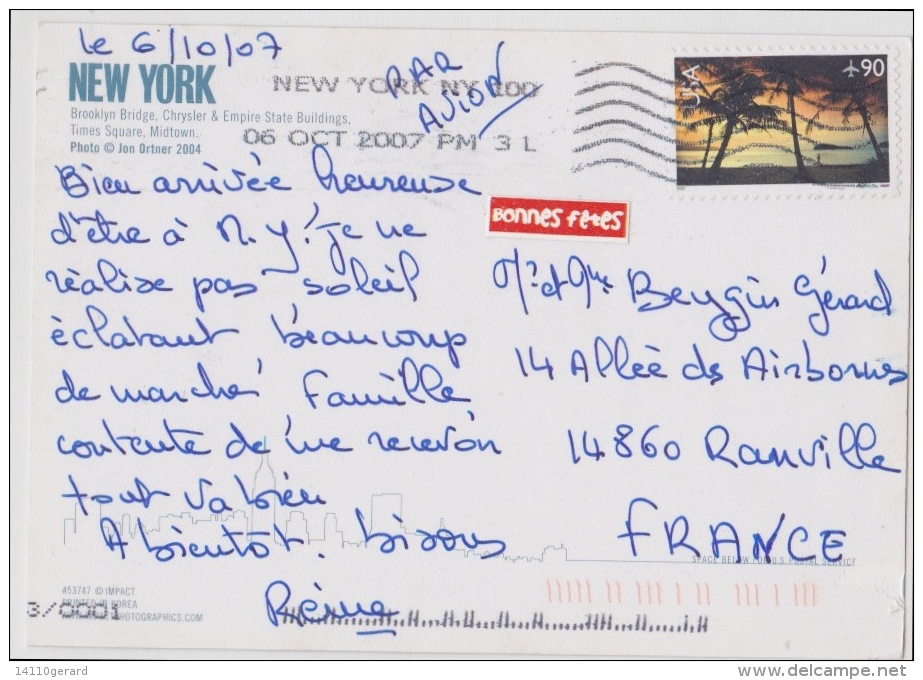 le 6/10/07
NEW YORK
Brooklyn Bridge, Chrysler & Empire State Buildings,
Times Square, Midtown.
Photo © Jon Ortner 2004
NEW YORK NY 100
06 OCT 2007 PM 3 L
PAR
AVION
USA
90
BONNES FêTES
Bien arrivée heureuse
d'être à N.Y! je ne
réalise pas soleil
éclatant beaucoup
de marche Famille
contente de me recevoir
tout va bien
A bientôt. bisous
Reine
Mr et Mme Beugin Gérard
14 Allée des Airbornes
14860 Ranville
FRANCE
SPACE BELOW FOR U.S. POSTAL SERVICE
#53747 © IMPACT
PRINTED IN KOREA
PHOTOGRAPHICS.COM
3/0001
14110gerard
www.delcampe.net